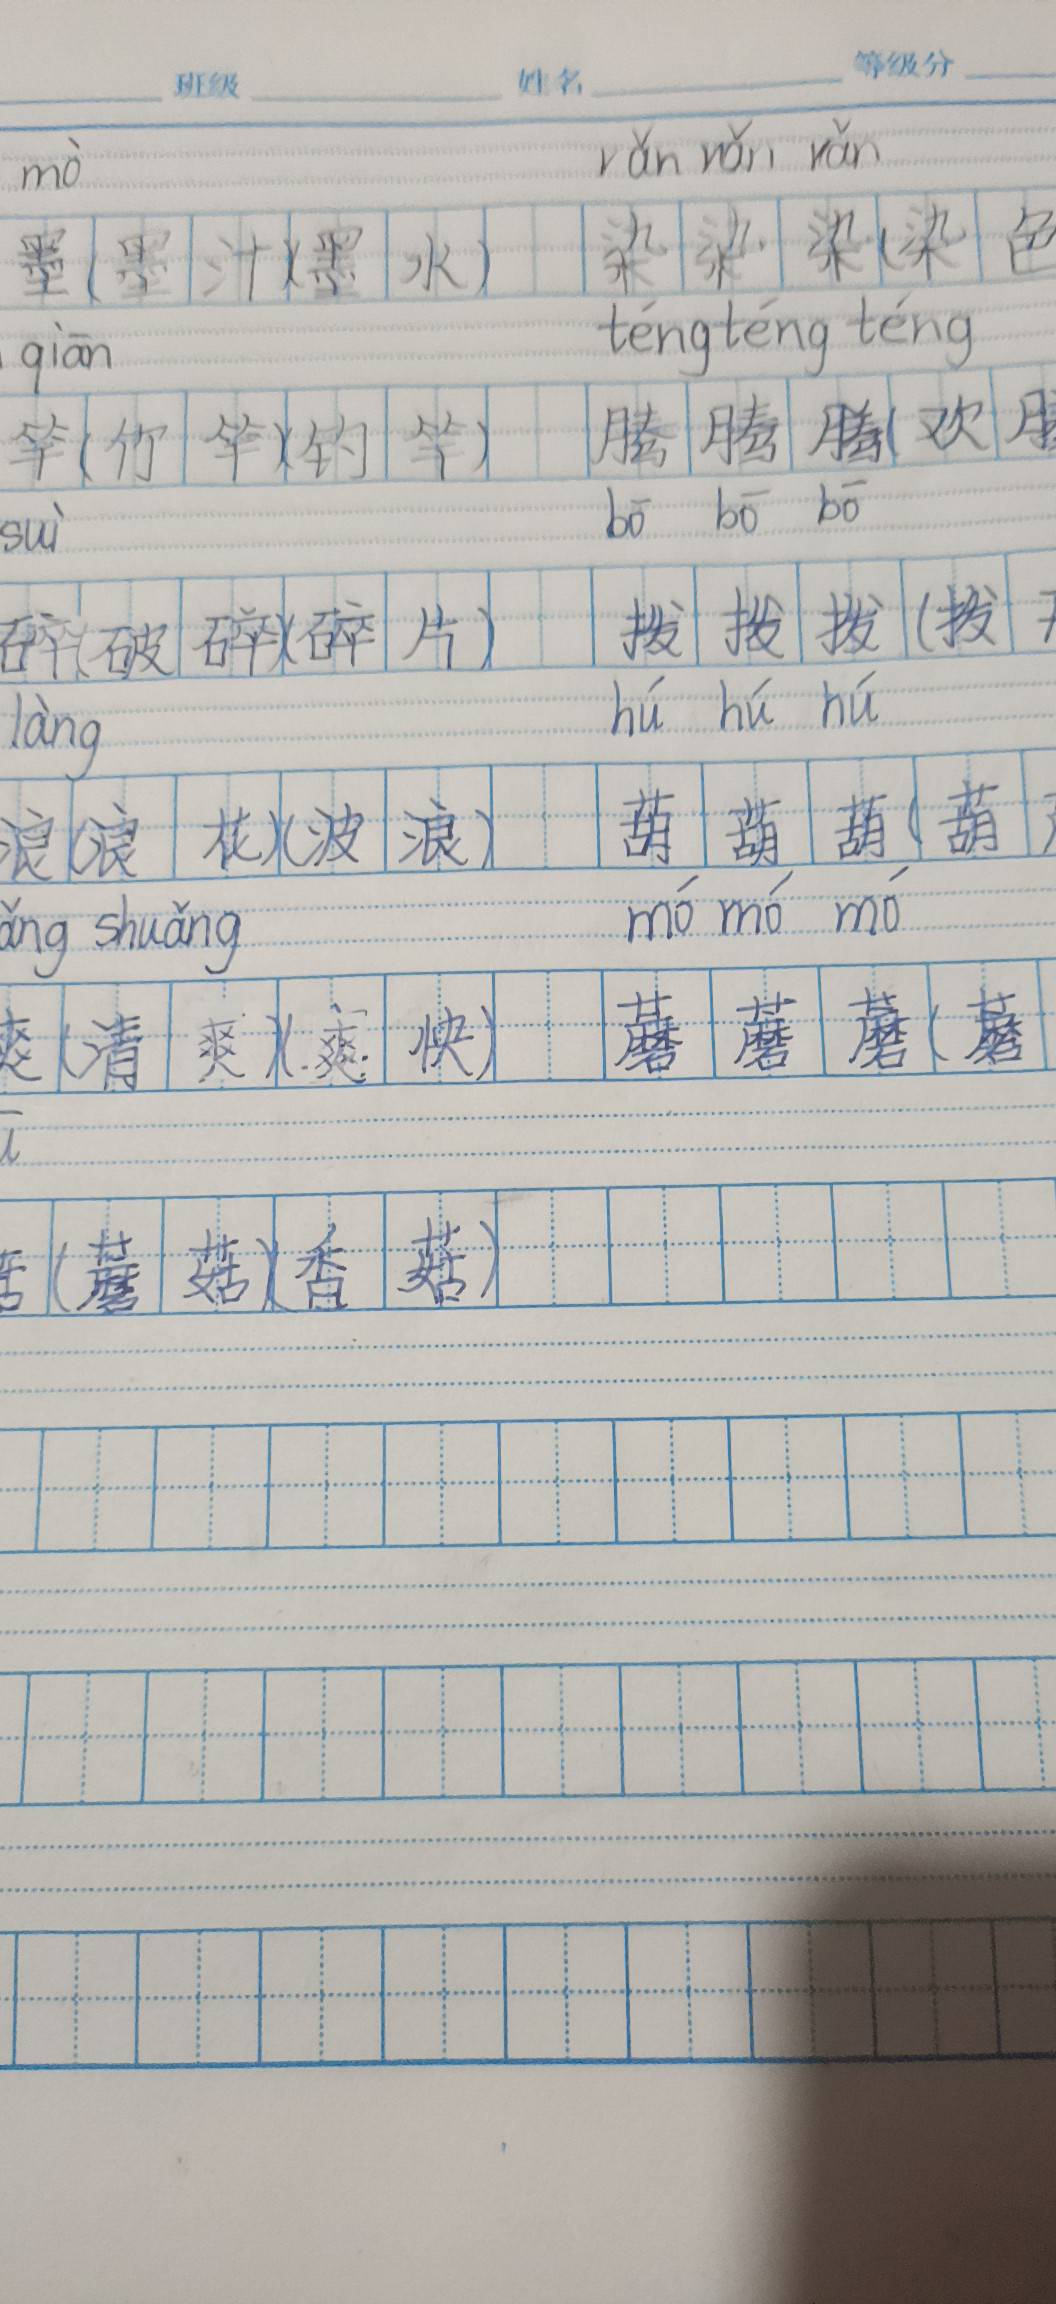 班级 姓名 等级分
mò rǎn rǎn rǎn
墨(墨汁)(墨水) 染染染(染色
qiān téng téng téng
竿(竹竿)(钓竿) 腾腾腾(欢腾
suì bō bō bō
碎(破碎)(碎片) 拨拨拨(拨开
làng hú hú hú
浪(浪花)(波浪) 葫葫葫(葫
ǎng shuǎng mó mó mó
爽(清爽)(爽快) 蘑蘑蘑(蘑
ū
菇(蘑菇)(香菇)